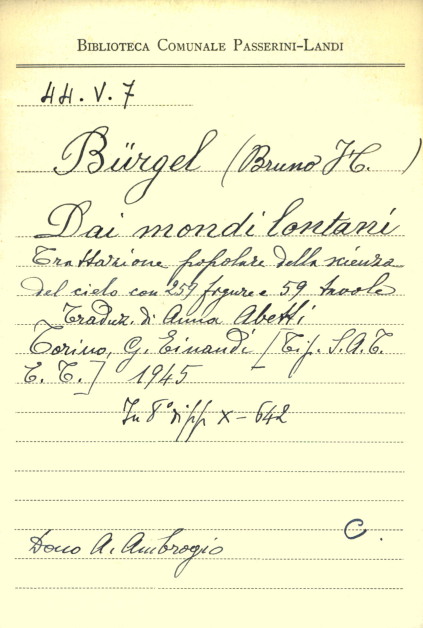 BIBLIOTECA COMUNALE PASSERINI-LANDI
44. V. 7
Bürgel (Bruno H. )
Dai mondi lontani
Trattazione popolare della scienza
del cielo con 257 figure e 59 tavole
Traduz. di Anna Abetti
Torino, G. Einaudi [Tip. S.A.T.
E. T.] 1945
In 8° di pp X - 642
C.
Dono A. Ambrogio